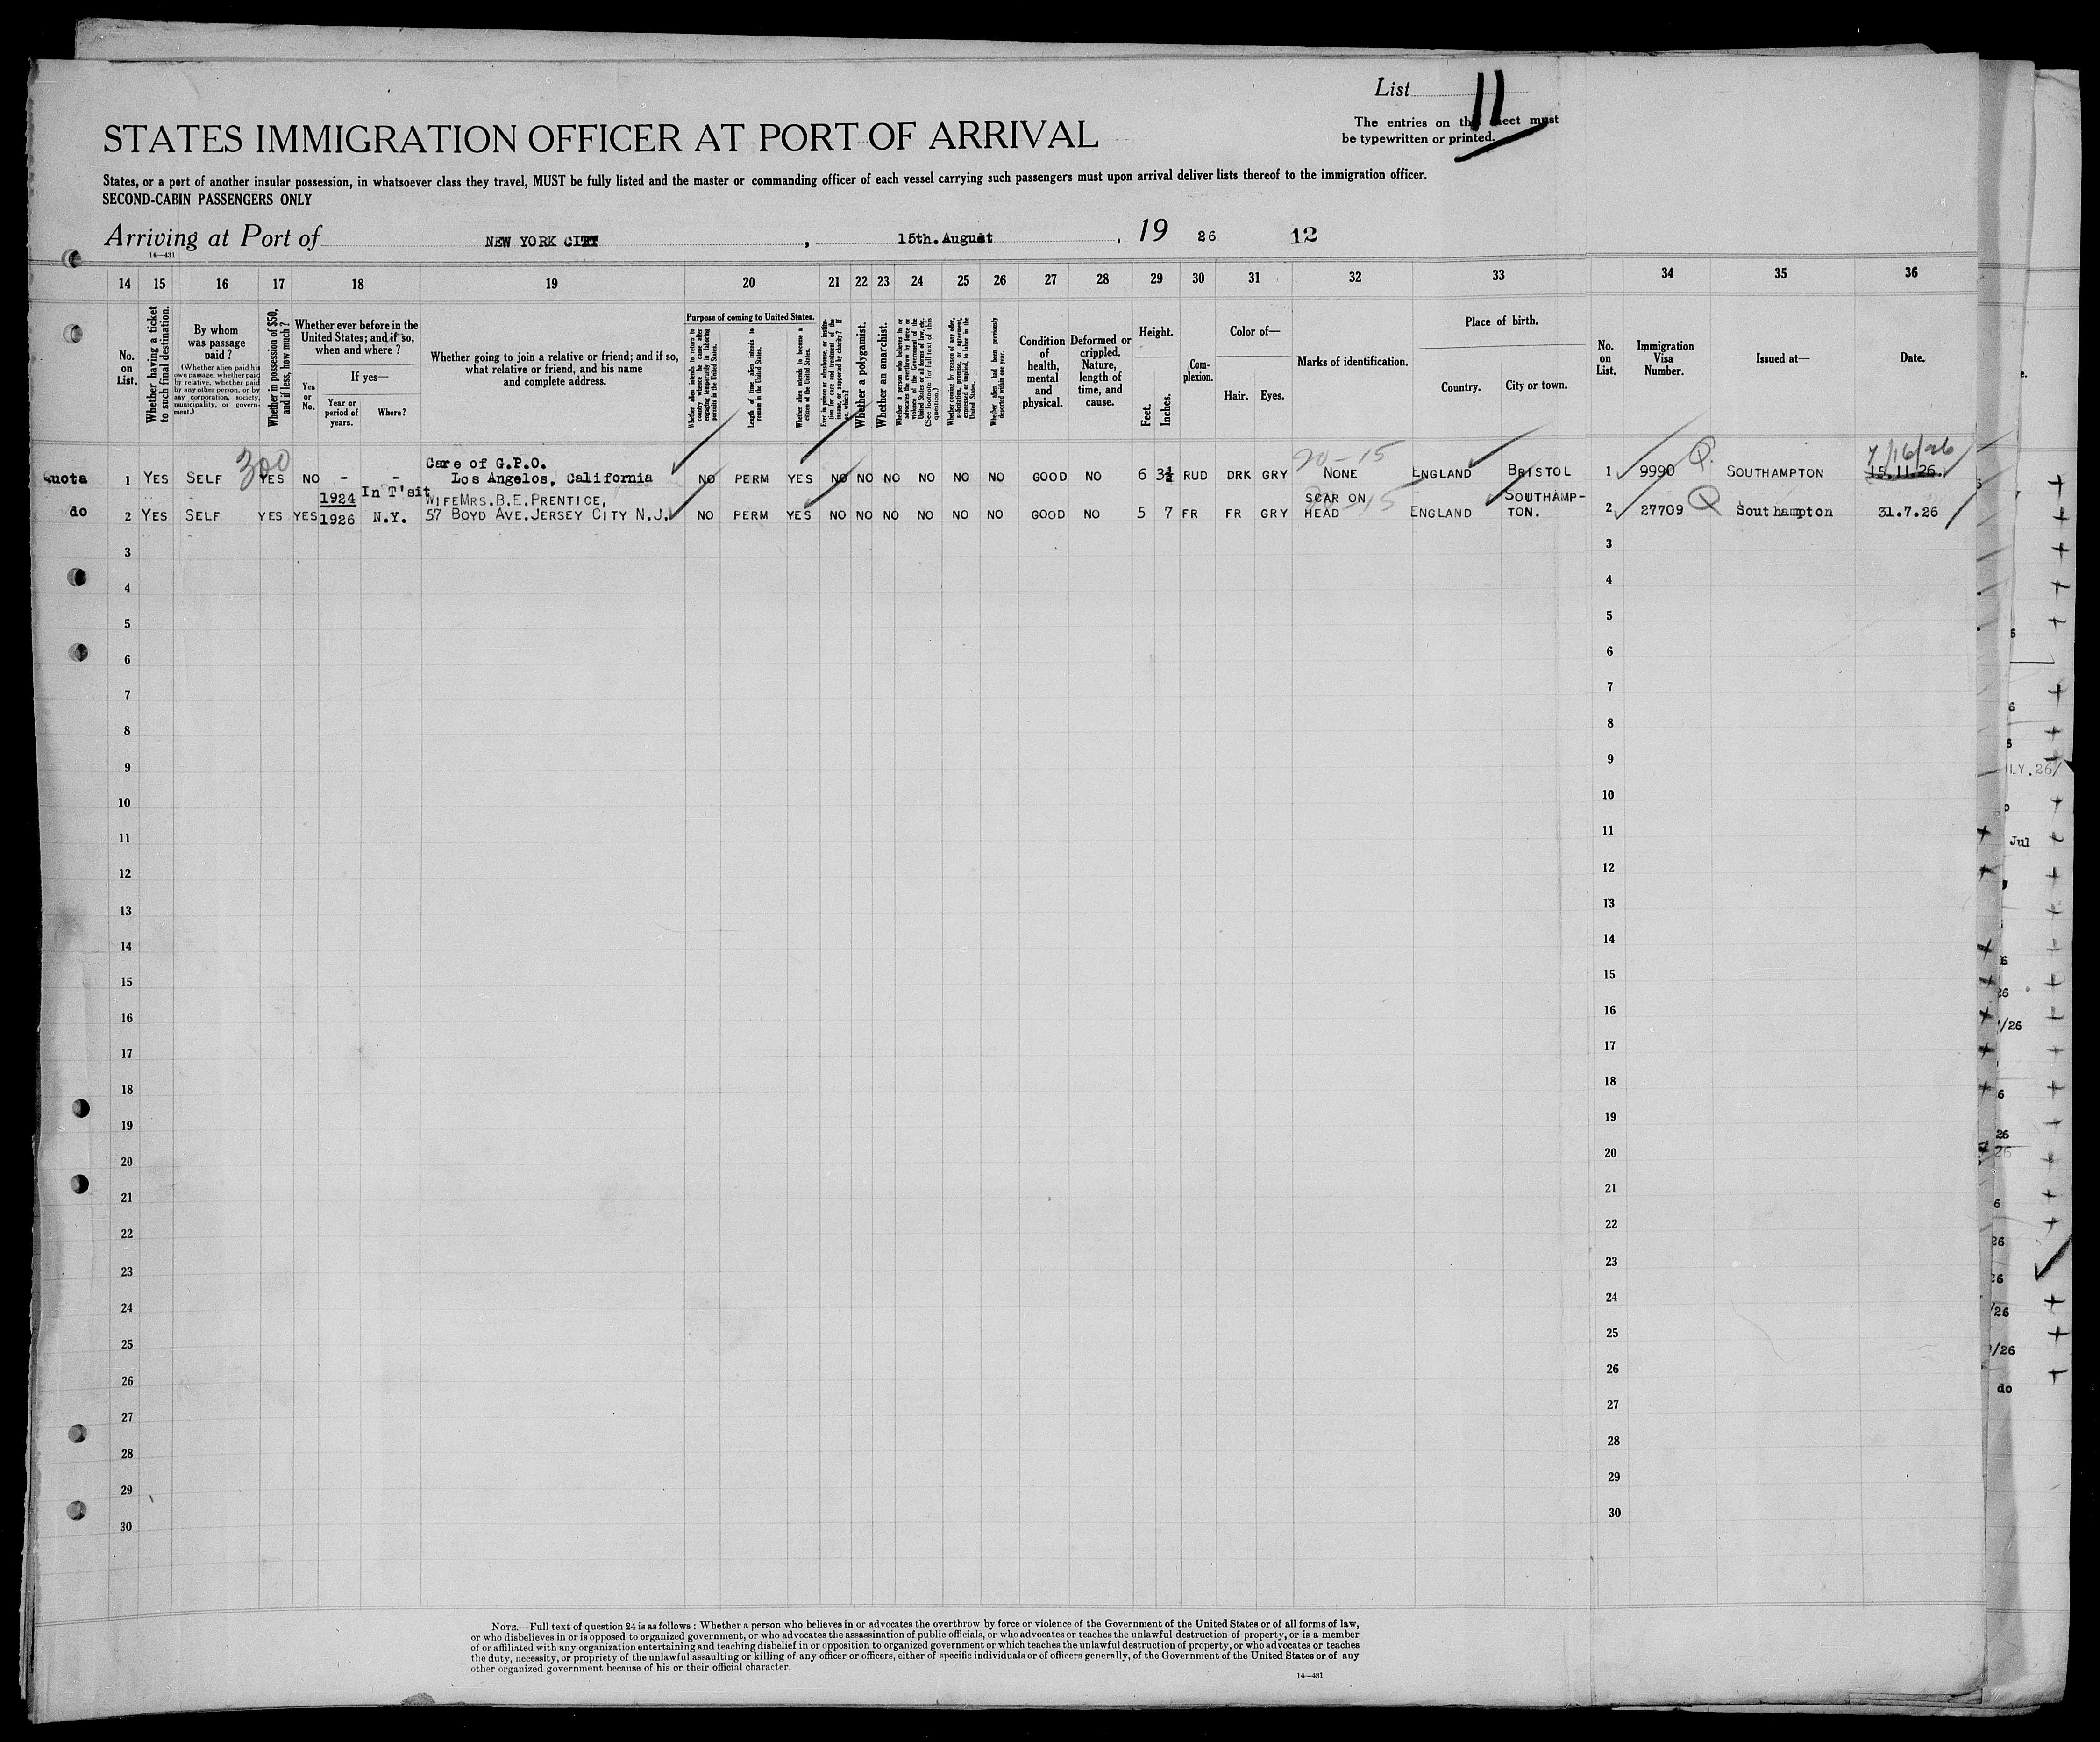 List 11
The entries on this sheet must
be typewritten or printed.
STATES IMMIGRATION OFFICER AT PORT OF ARRIVAL
States, or a port of another insular possession, in whatsoever class they travel, MUST be fully listed and the master or commanding officer of each vessel carrying such passengers must upon arrival deliver lists thereof to the immigration officer.
SECOND-CABIN PASSENGERS ONLY
Arriving at Port of NEW YORK CITY, 15th. August, 19 26 12
14—431
14 15 16 17 18 19 20 21 22 23 24 25 26 27 28 29 30 31 32 33 34 35 36
No. on List.
Whether having a ticket to such final destination.
By whom was passage paid?
(Whether alien paid his own passage, whether paid by relative, whether paid by any other person, or by any corporation, society, municipality, or government.)
Whether in possession of $50, and if less, how much?
Whether ever before in the United States; and if so, when and where?
Yes or No.
If yes—
Year or period of years.
Where?
Whether going to join a relative or friend; and if so, what relative or friend, and his name and complete address.
Purpose of coming to United States.
Whether alien intends to return to country whence he came after engaging temporarily in laboring pursuits in the United States.
Length of time alien intends to remain in the United States.
Whether alien intends to become a citizen of the United States.
Ever in prison or almshouse, or institution for care and treatment of the insane, or supported by charity? If so, which?
Whether a polygamist.
Whether an anarchist.
Whether a person who believes in or advocates the overthrow by force or violence of the Government of the United States or all forms of law, etc. (See footnote for full text of this question.)
Whether coming by reason of any offer, solicitation, promise, or agreement, expressed or implied, to labor in the United States.
Whether alien had been previously deported within one year.
Condition of health, mental and physical.
Deformed or crippled. Nature, length of time, and cause.
Height.
Feet. Inches.
Complexion.
Color of—
Hair. Eyes.
Marks of identification.
Place of birth.
Country. City or town.
No. on List.
Immigration Visa Number.
Issued at—
Date.
300 Care of G.P.O. 20-15 Q. 7/16/26
Quota 1 YES SELF YES NO - - Los Angelos, California NO PERM YES NO NO NO NO NO NO GOOD NO 6 3½ RUD DRK GRY NONE ENGLAND BRISTOL 1 9990 SOUTHAMPTON 15.11.26.
1924 In T'sit WIFE MRS. B.E. PRENTICE, SCAR ON SOUTHAMP-
do 2 YES SELF YES YES 1926 N.Y. 57 BOYD AVE. JERSEY CITY N.J. NO PERM YES NO NO NO NO NO NO GOOD NO 5 7 FR FR GRY HEAD ENGLAND TON. 2 27709 Q Southampton 31.7.26
3 3
4 4
5 5
6 6
7 7
8 8
9 9
10 10
11 11
12 12
13 13
14 14
15 15
16 16
17 17
18 18
19 19
20 20
21 21
22 22
23 23
24 24
25 25
26 26
27 27
28 28
29 29
30 30
LY.26/
Jul
/26
26
26
/26
/26
do
NOTE.—Full text of question 24 is as follows: Whether a person who believes in or advocates the overthrow by force or violence of the Government of the United States or of all forms of law,
or who disbelieves in or is opposed to organized government, or who advocates the assassination of public officials, or who advocates or teaches the unlawful destruction of property, or is a member
of or affiliated with any organization entertaining and teaching disbelief in or opposition to organized government or which teaches the unlawful destruction of property, or who advocates or teaches
the duty, necessity, or propriety of the unlawful assaulting or killing of any officer or officers, either of specific individuals or of officers generally, of the Government of the United States or of any
other organized government because of his or their official character.
14—431